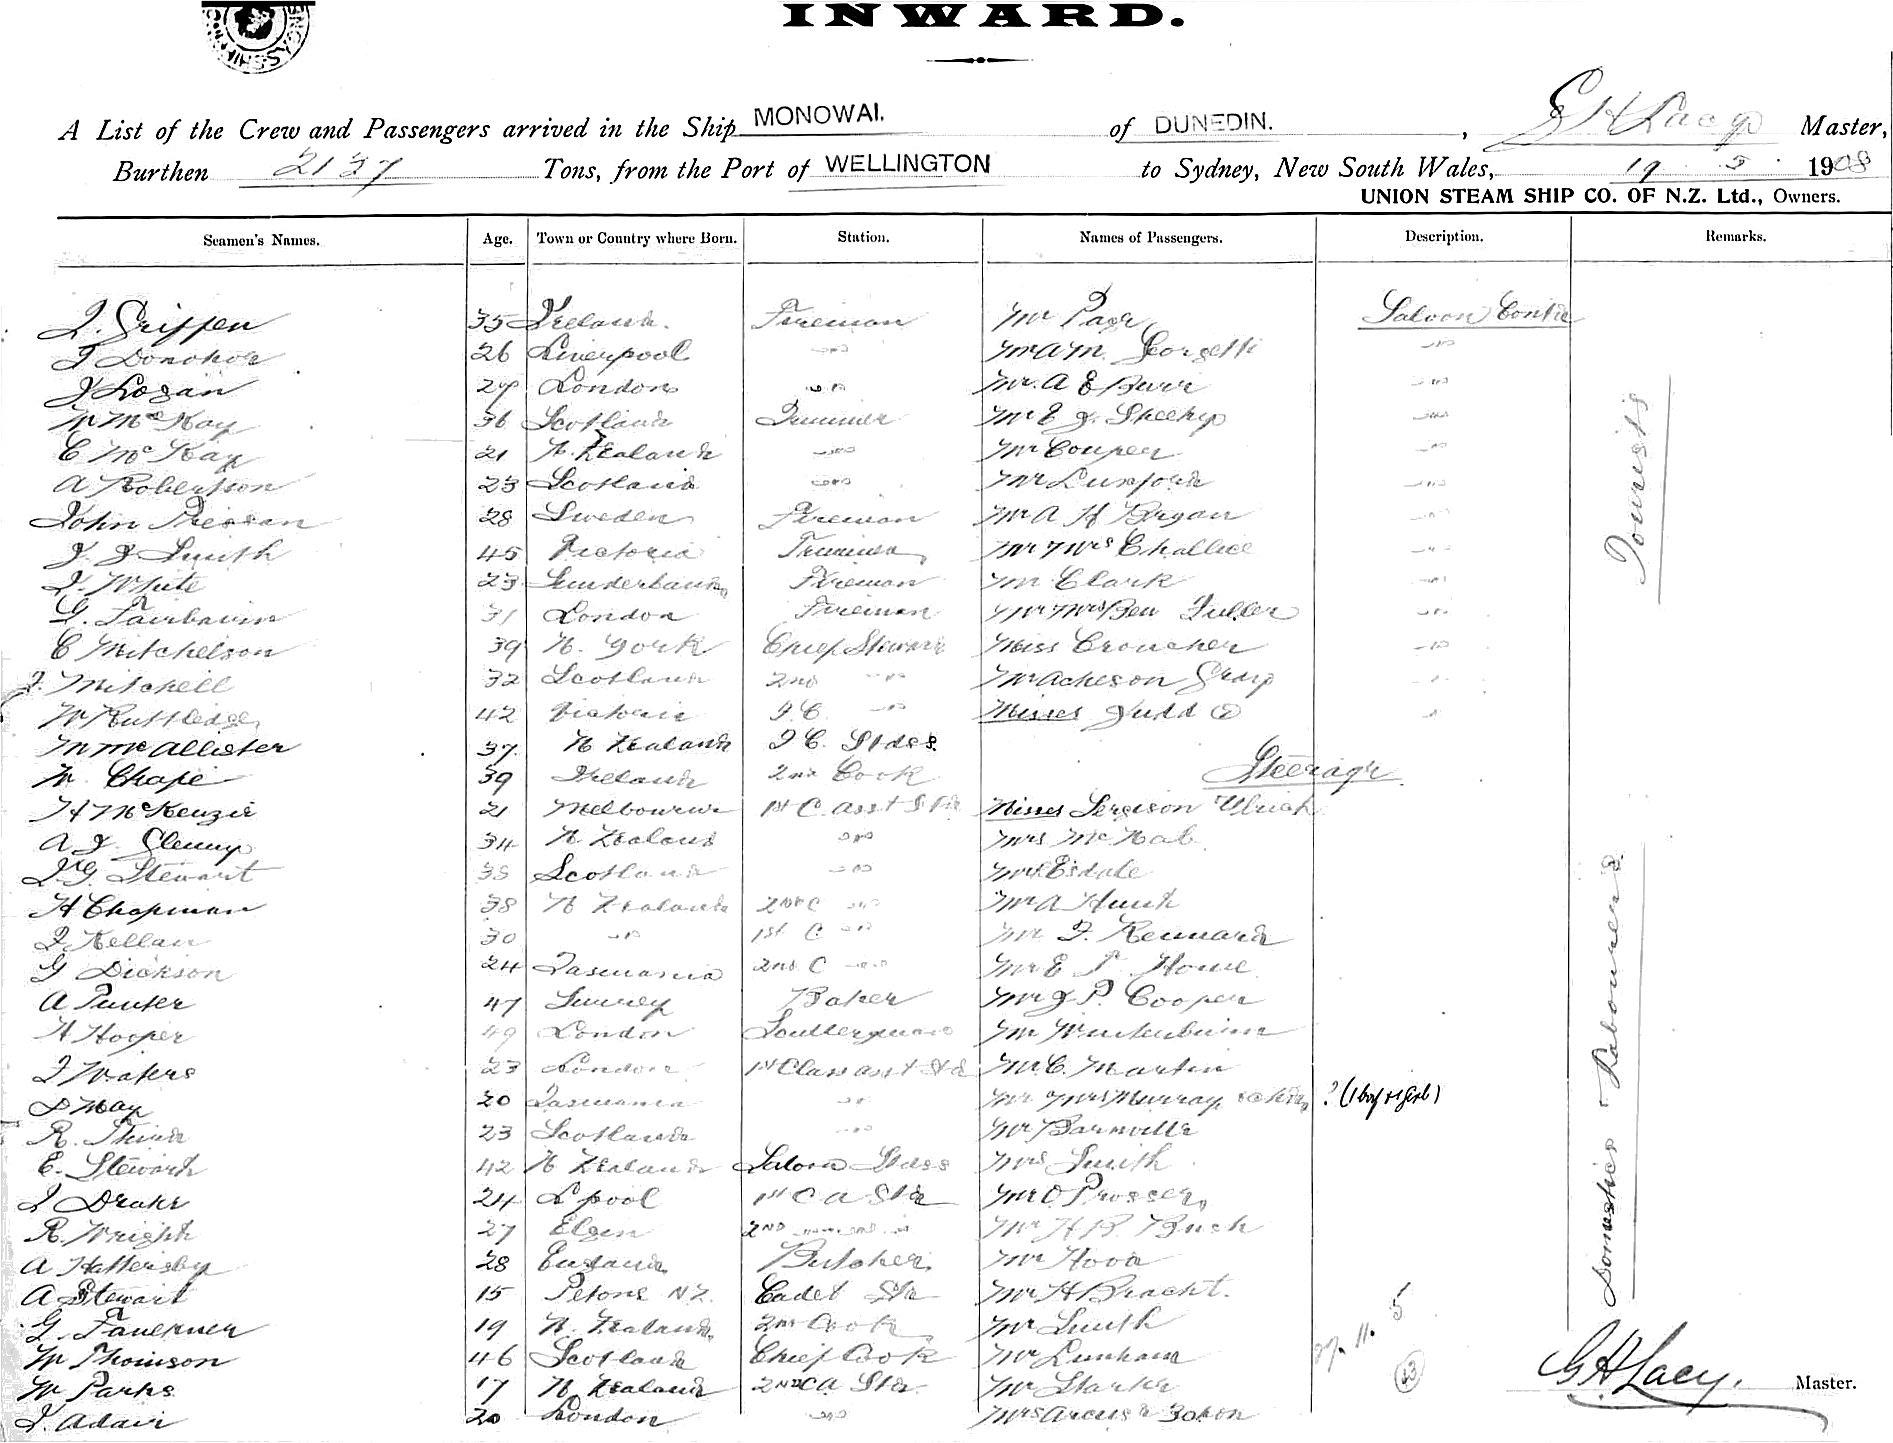 INWARD.
A List of the Crew and Passengers arrived in the Ship MONOWAI. of DUNEDIN. , G H Lacy Master,
Burthen 2137 Tons, from the Port of WELLINGTON to Sydney, New South Wales, 19 5 1908
UNION STEAM SHIP CO. OF N.Z. Ltd., Owners.
Seamen's Names. Age. Town or Country where Born. Station. Names of Passengers. Description. Remarks.
J. Griffen 35 Ireland. Fireman Mr Page Saloon Contd
T Donohoe 26 Liverpool " Mr A M. Georgetti "
J Logan 27 London " Mr. A E Burr "
W McKay 36 Scotland Trimmer Mr E J. Sheehy "
C McKay 21 N. Zealand " Mr Couper "
A Robertson 23 Scotland " Mr Lunford "
John 28 Sweden Fireman Mr A H Bryan "
J J Smith 45 Victoria Trimmer Mr & Mrs Challice "
J. White 23 Sunderland Fireman Mr Clark "
G. Fairbairn 31 London Fireman Mr & Mrs Ben Fuller "
C Mitchelson 39 N. York Chief Steward Miss Croucher "
J. Mitchell 32 Scotland 2nd " Mr Acheson Gray "
W Ruttledge 42 Victoria F.C. " Misses Judd (2) "
M McAllister 37 N Zealand F C. Stdss
Tourists
W. Chape 39 Ireland 2nd Cook Steerage
H McKenzie 21 Melbourne 1st C. asst Std Misses Sergison Ulrich
A J. Clemp 34 N Zealand " Mrs McNab
J. G. Stewart 38 Scotland " Mrs Esdale
H Chapman 38 N Zealand 2nd C " Mr A Hunt
J. Kellan 30 " 1st C " Mr F. Rennard
G Dickson 24 Tasmania 2nd C " Mr E T Howe
A Punter 47 Surrey Baker Mr J P. Cooper
H Hooper 49 London Sculleryman Mr
J Waters 23 London 1st Class asst Std Mr C. Martin
D May 20 Tasmania " Mr & Mrs Murray & chdn ? (1 boy & 1 girl)
R. 23 Scotland " Mr Barnville
E. Stewart 42 N Zealand Saloon Stdss Mrs Smith
J Drake 24 L'pool 1st C A Std Mr O Prosser
R. Wright 27 Elgin 2ND " Mr H B. Buch
A Hattersby 28 England Butcher Mr Hood
A Stewart 15 Petone NZ. Cadet Std Mr H Bracht.
G. Faulkner 19 N. Zealand 2nd Cook Mr Smith
W Thomson 46 Scotland Chief Cook Mr Lunham
W Parks 17 N Zealand 2nd C A Std. Mr Starke
J. Adair 20 London " Mrs
Domestics & Labourers
5
23
G H Lacy. Master.